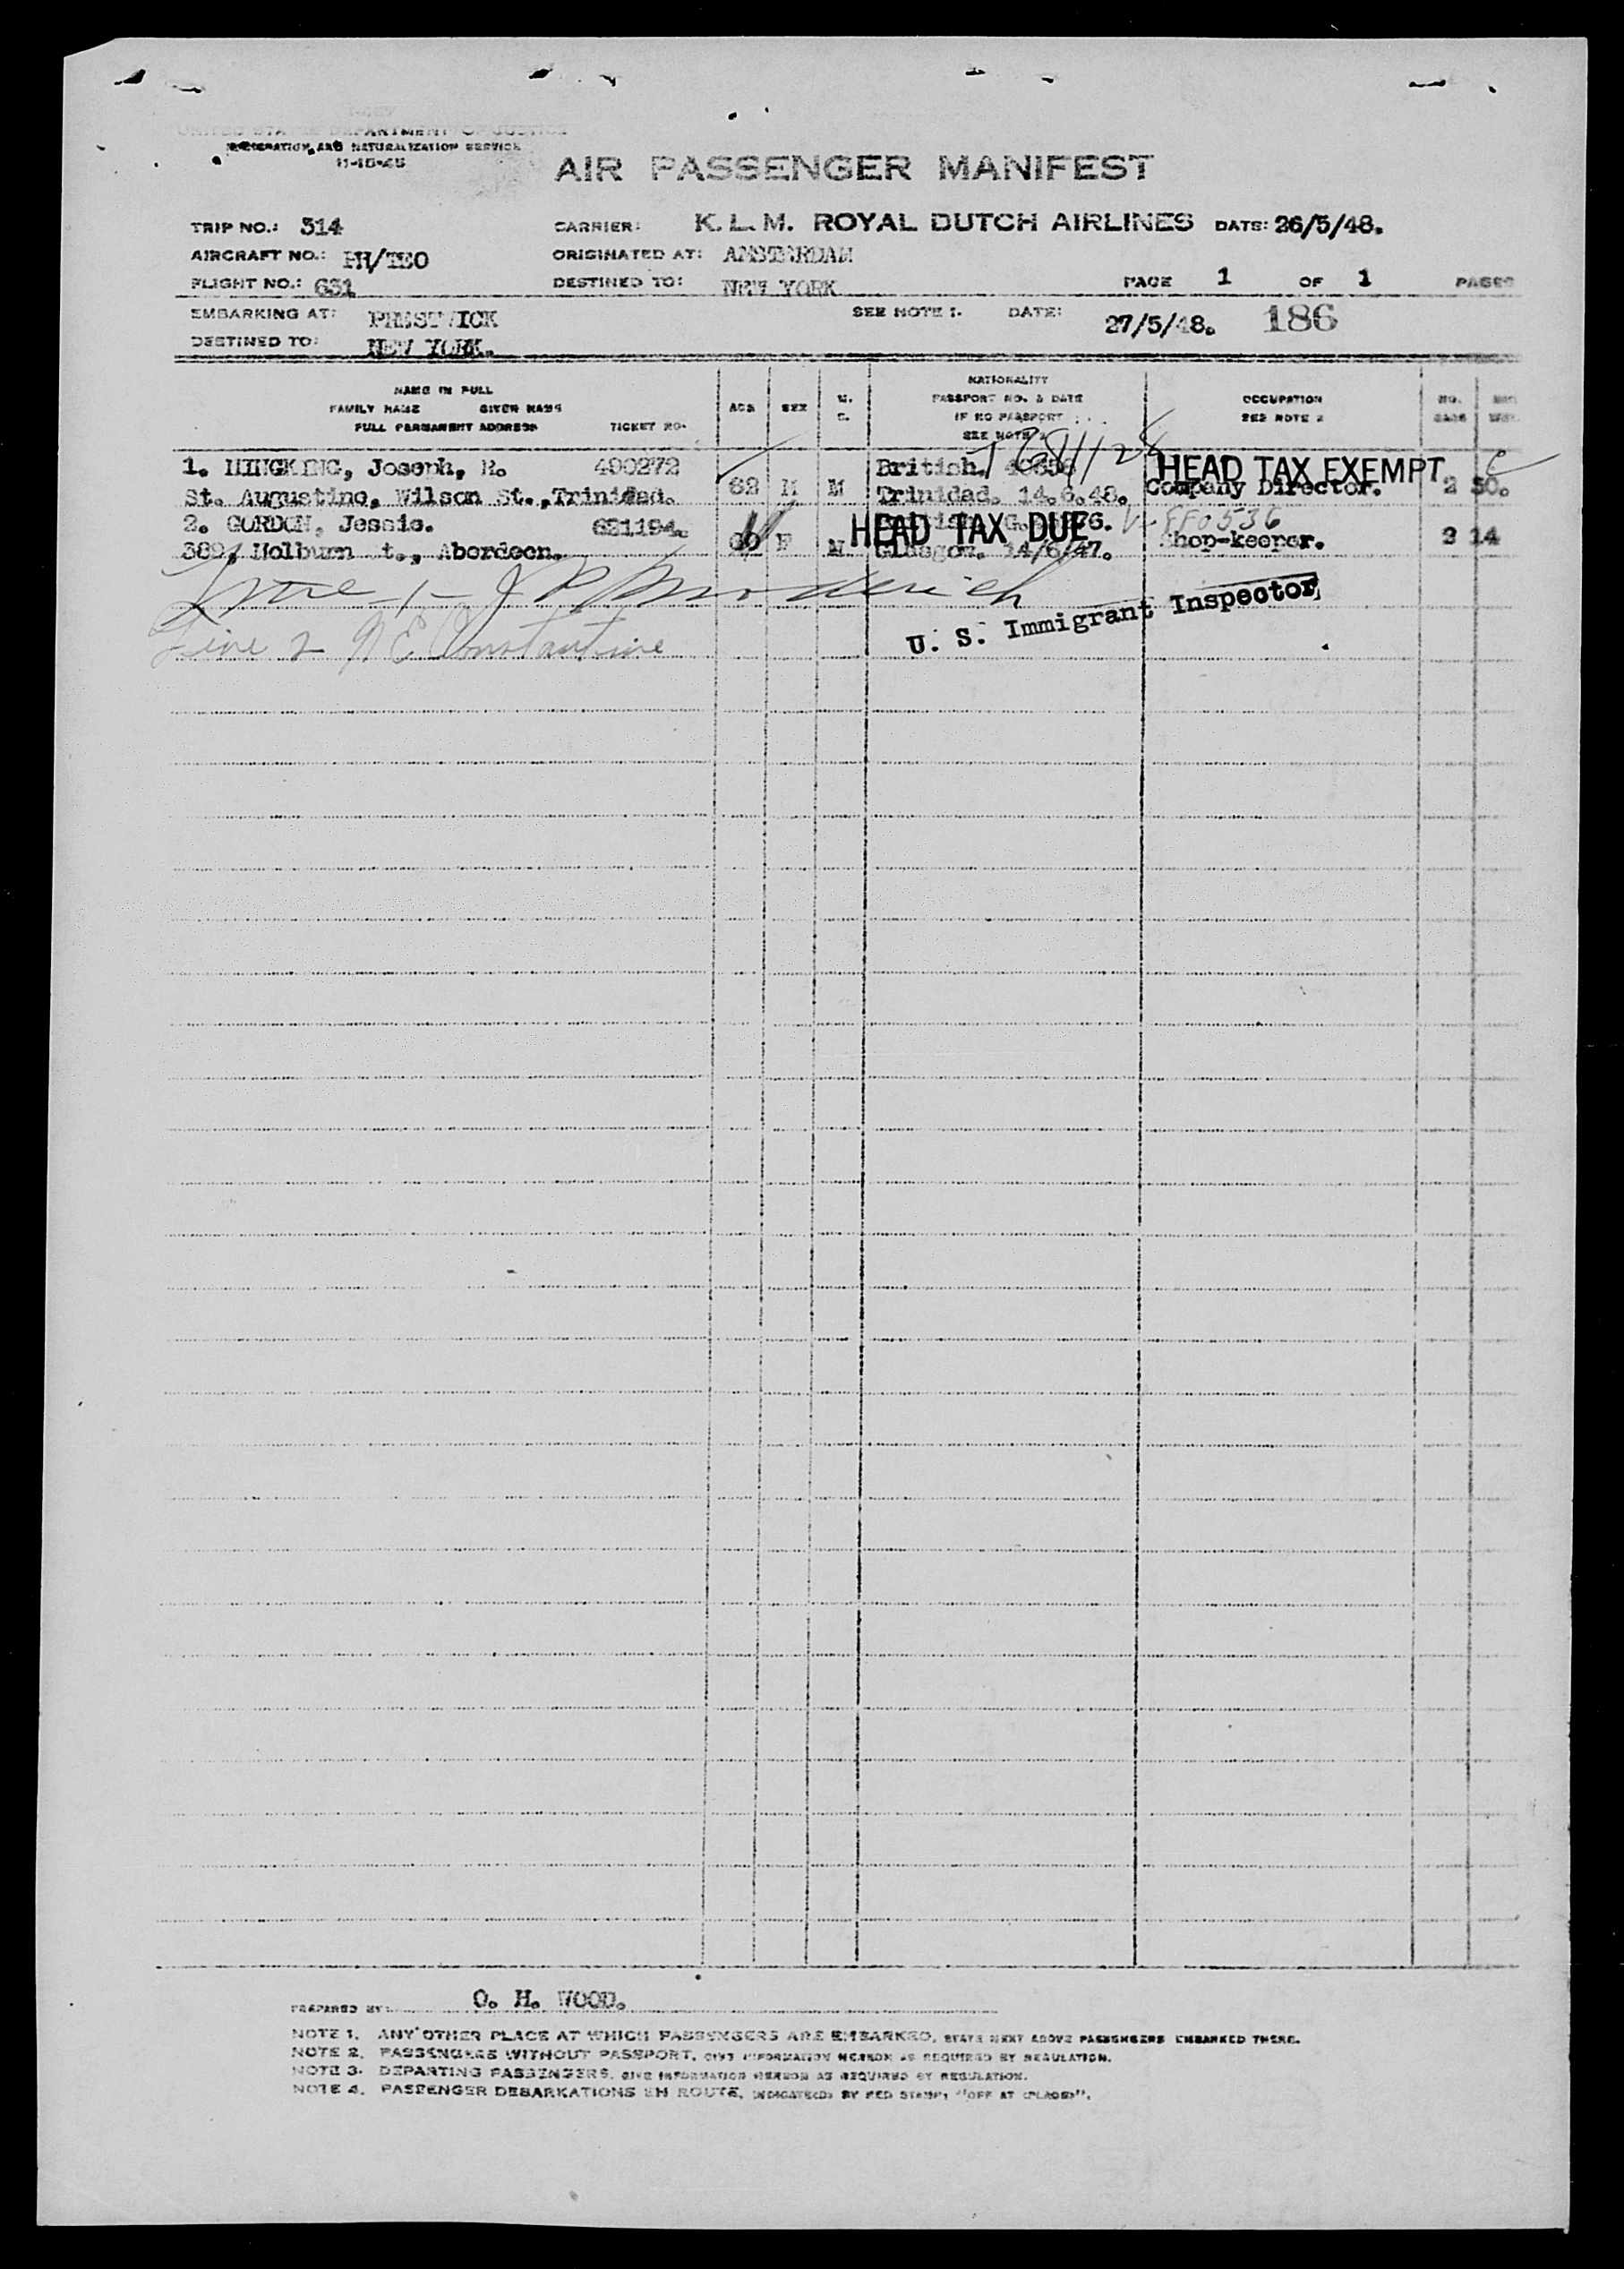 UNITED STATES DEPARTMENT OF JUSTICE
IMMIGRATION AND NATURALIZATION SERVICE
11-15-45
AIR PASSENGER MANIFEST
TRIP NO.: 314 CARRIER: K.L.M. ROYAL DUTCH AIRLINES DATE: 26/5/48.
AIRCRAFT NO.: PH/TEO ORIGINATED AT: AMSTERDAM
FLIGHT NO.: 631 DESTINED TO: NEW YORK PAGE 1 OF 1 PAGES
EMBARKING AT: PRESTWICK SEE NOTE 1. DATE: 27/5/48. 186
DESTINED TO: NEW YORK.
NAME IN FULL
FAMILY NAME GIVEN NAME
FULL PERMANENT ADDRESS TICKET NO.
AGE SEX M. S.
NATIONALITY
PASSPORT NO. & DATE
IF NO PASSPORT
SEE NOTE 2
OCCUPATION
SEE NOTE 2
NO.
1. Joseph, 400272 British. HEAD TAX EXEMPT
St. Augustine, Wilson St., Trinidad. 62 M M Trinidad. 14.6.48. Company Director. 2 50.
2. GORDON, Jessie. 621194. HEAD TAX DUE
Holburn t., Aberdeen. F M Glasgow. 14/6/47. Shop-keeper. 2 14
Line 1-
U. S. Immigrant Inspector
Line 2 N E Constantine
PREPARED BY: O. H. WOOD.
NOTE 1. ANY OTHER PLACE AT WHICH PASSENGERS ARE EMBARKED, STATE NEXT ABOVE PASSENGERS EMBARKED THERE.
NOTE 2. PASSENGERS WITHOUT PASSPORT, GIVE INFORMATION HEREON AS REQUIRED BY REGULATION.
NOTE 3. DEPARTING PASSENGERS, GIVE INFORMATION HEREON AS REQUIRED BY REGULATION.
NOTE 4. PASSENGER DEBARKATIONS EN ROUTE, INDICATE(D) BY RED STAMP: "OFF AT (PLACE)".